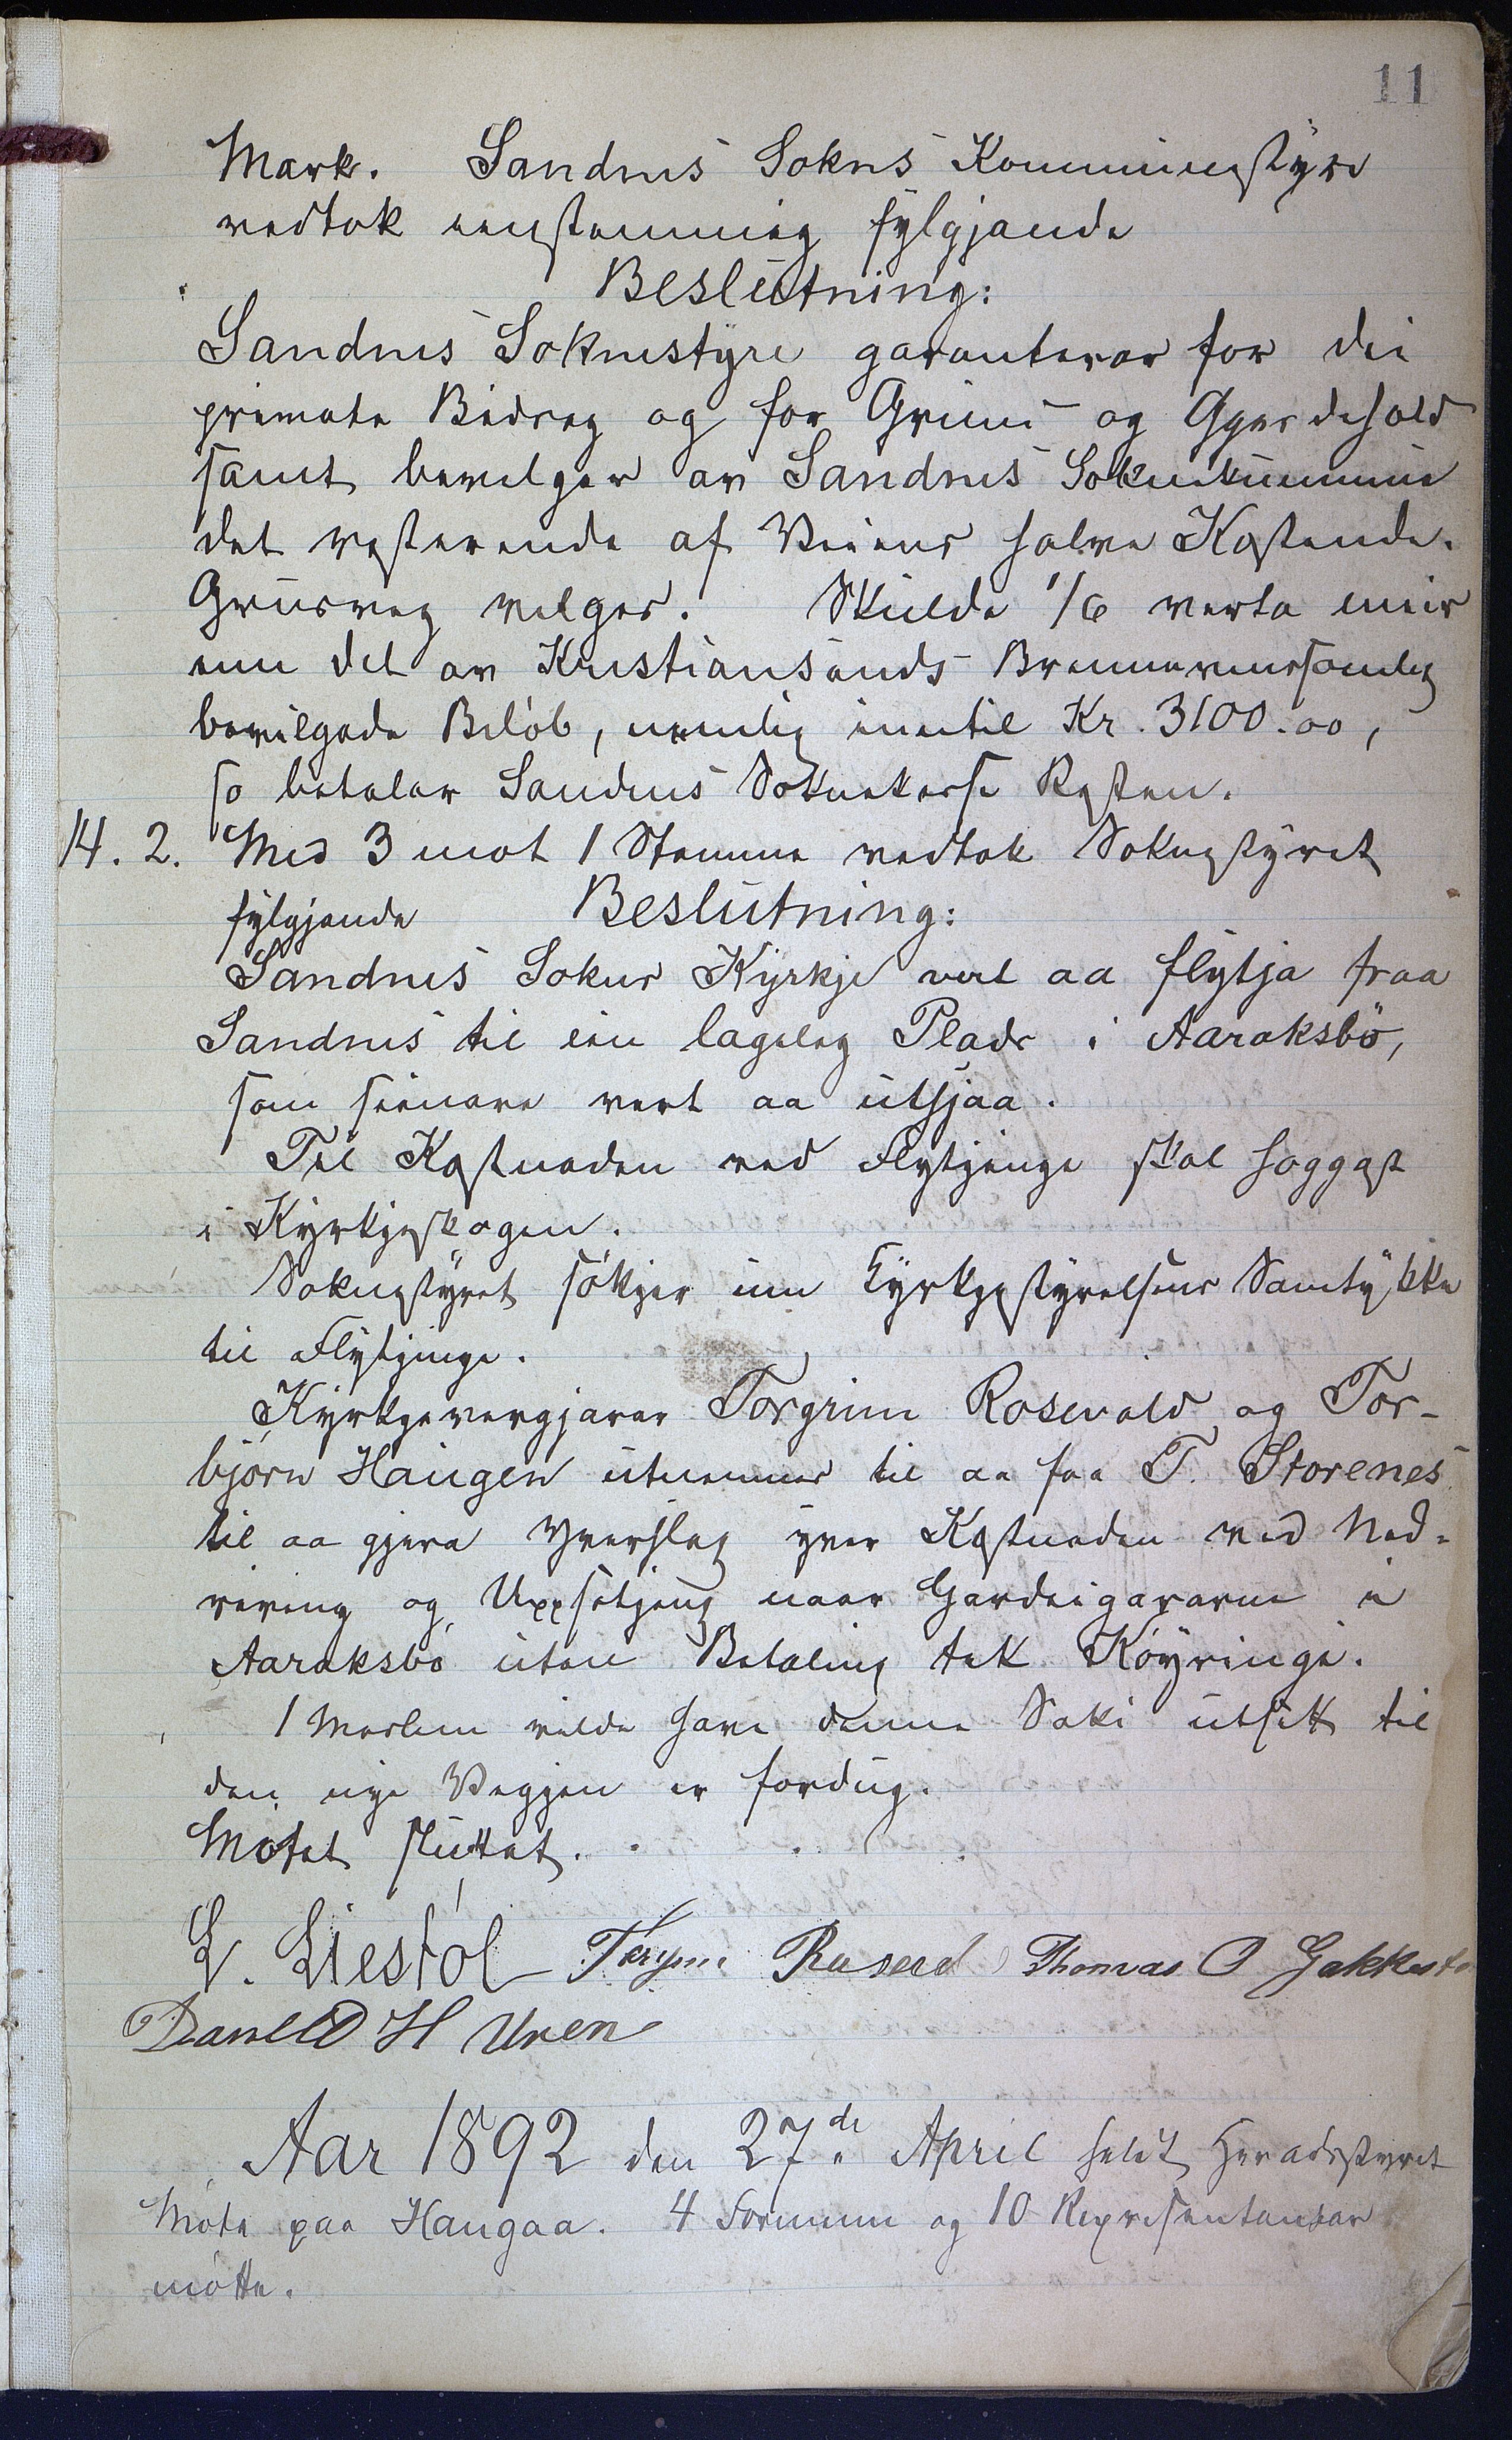 11
Mark. Sandnes Sokns Kommunestyre
vedtok einstemmig fylgjande
Beslutning:
Sandnes Soknestyre garanterar for dei
private Bidrag og for Grunn og Gjerdehald
samt bevilger av Sandnes Soknekummune
det resterande af Veiens halve Kostende.
Grusveg velges. Skulde 1/6 verta meir
enn det av Kristiansands Brennevinssamlag
bevilgade Belöb, nemlig inntil Kr. 3100.00,
so betalar Sandnes Soknekasse Resten.
14. 2. Med 3 mot 1 Stemme vedtok Soknestyret
fylgjande Beslutning:
Sandnes Sokns Kyrkje vert aa flytja fraa
Sandnes til ein lagaleg Plads i Aaraksbö,
som seinare vert aa utsjaa.
Til Kostnaden ved Flytjinge skal hoggast
i Kyrkjeskogen.
Soknestyret sökjer um Kyrkjestyrelsens Samtykke
til Flytjinge.
Kyrkjevergjarar Torgrim Rosevald og Tor-
björn Haugen utnemnes til aa faa T. Storenes
til aa gjera Yverslag yver Kostnaden ved Ned-
riving og Uppsetjing naar Gardeigararne i
Aaraksbö utan Betaling tek Köyringi.
1 Medlem vilde have denne Saki utsett til
den nye Vegjen er fordug.
Mötet sluttat.
L. Liestöl Torgrim Rosevald Thomas O
Daniel H Uren
Aar 1892 den 27de April heldt Heradsstyret
Möte paa Haugaa. 4 Formenn og 10 Representantar
mötte.